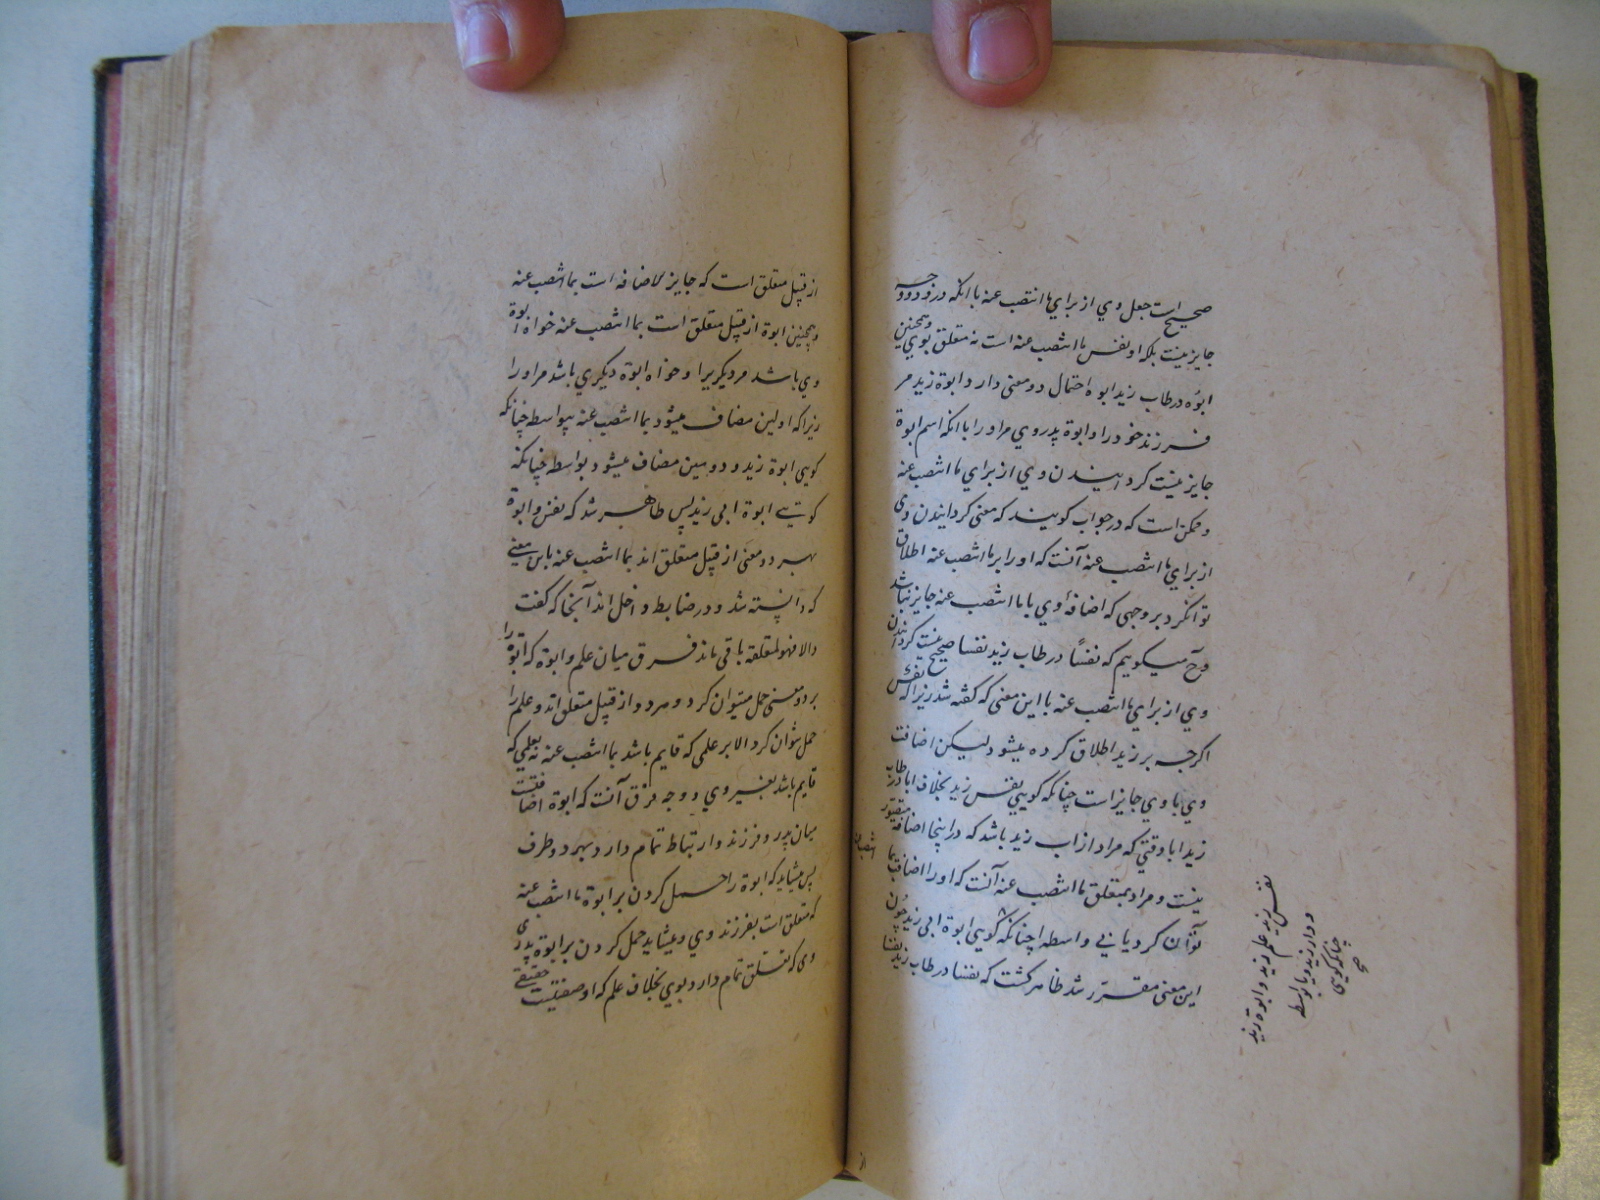 صحیح است جعل وی از برای ما انتصب عنه با آنکه درو دو وجه
جایز نیست بلکه او نفس ما انتصب عنه است نه متعلق بوی و همچنین
ابوّه در طاب زید ابوة احتمال دو معنی دارد ابوة زید مر
فرزند خود را و ابوة پدر وی مر او را با آنکه اسم ابوة
جایز نیست گردانیدن وی از برای ما انتصب عنه
و ممکن است که در جواب گویند که معنی گردانیدن وی
از برای ما انتصب عنه آنست که او را بر ما انتصب عنه اطلاق
توان کرد بر وجهی که اضافهٔ وی با ما انتصب عنه جایز نباشد
وح میگوییم که نفساً در طاب زید نفسا صحیح نیست گردانیدن
وی از برای ما انتصب عنه با این معنی که گفته شد زیرا که نفس
اگرچه بر زید اطلاق کرده میشود لیکن اضافت
وی با وی جایز است چنانکه گویی نفس زید بخلاف ابا در طاب
زید ابا وقتی که مراد از اب زید باشد که در اینجا اضافة متصور
نیست و مراد بمتعلق ما انتصب عنه آنست که او را اضافت بما
انتصب عنه
توان کرد یا بی واسطه چنانکه گویی ابوة ابی زید چون
این معنی مقرّر شد ظاهر گشت که نفسا در طاب زید نفسا
نفس زید علم زید و ابوة زید
و دار زید و یا بواسطه
چنانکه گویی
صح
از
از قبیل متعلق است که جایز الاضافه است بما انتصب عنه
و همچنین ابوة از قبیل متعلق است بما انتصب عنه خواه ابوة
وی باشد مر دیگریرا و خواه ابوة دیگری باشد مر او را
زیرا که اولین مضاف میشود بما انتصب عنه بیواسطه چنانکه
گویی ابوة زید و دومین مضاف میشود بواسطه چنانکه
گویی ابوة ابی زید پس ظاهر شد که نفس و ابوة
بهر دو معنی از قبیل متعلق اند بما انتصب عنه باین معنی
که دانسته شد و در ضابط داخل اند آنجا که گفت
والا فهو لمتعلقه باقی ماند فرق میان علم و ابوة که ابوة را
بر دو معنی حمل میتوان کرد و هر دو از قبیل متعلق اند و علم را
حمل نتوان کرد الا بر علمی که قایم باشد بما انتصب عنه نه بعلمی که
قایم باشد بغیر وی و وجه فرق آنست که ابوة اضافتیست
میان پدر و فرزند و ارتباط تمام دارد بهر دو طرف
پس میشاید که ابوة را حمل کردن بر ابوة ما انتصب عنه
که متعلق است بفرزند وی و میشاید حمل کردن بر ابوة پدر وی
وی که تعلق تمام دارد بوی بخلاف علم که او صفتیست حقیقی